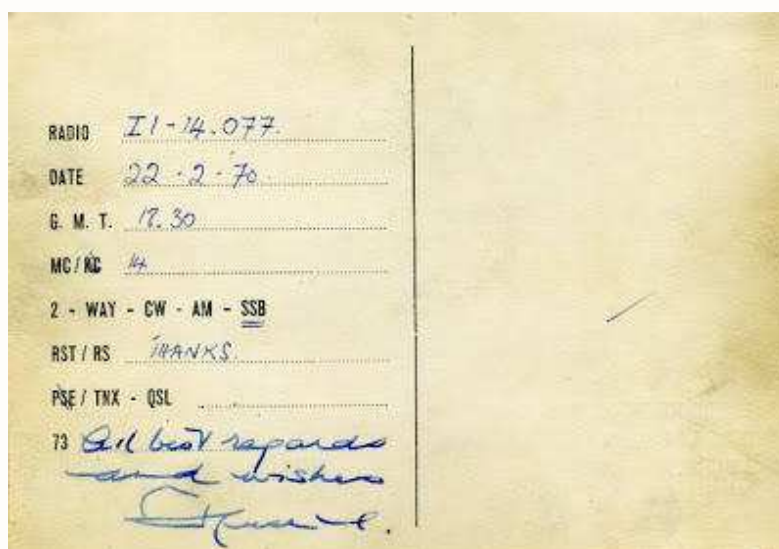 RADIO I1-14.077.
DATE 22-2-70.
G. M. T. 17.30
MC/KC 14
2 - WAY - CW - AM - SSB
RST / RS THANKS.
PSE / TNX - QSL
73 All best regards
and wishes